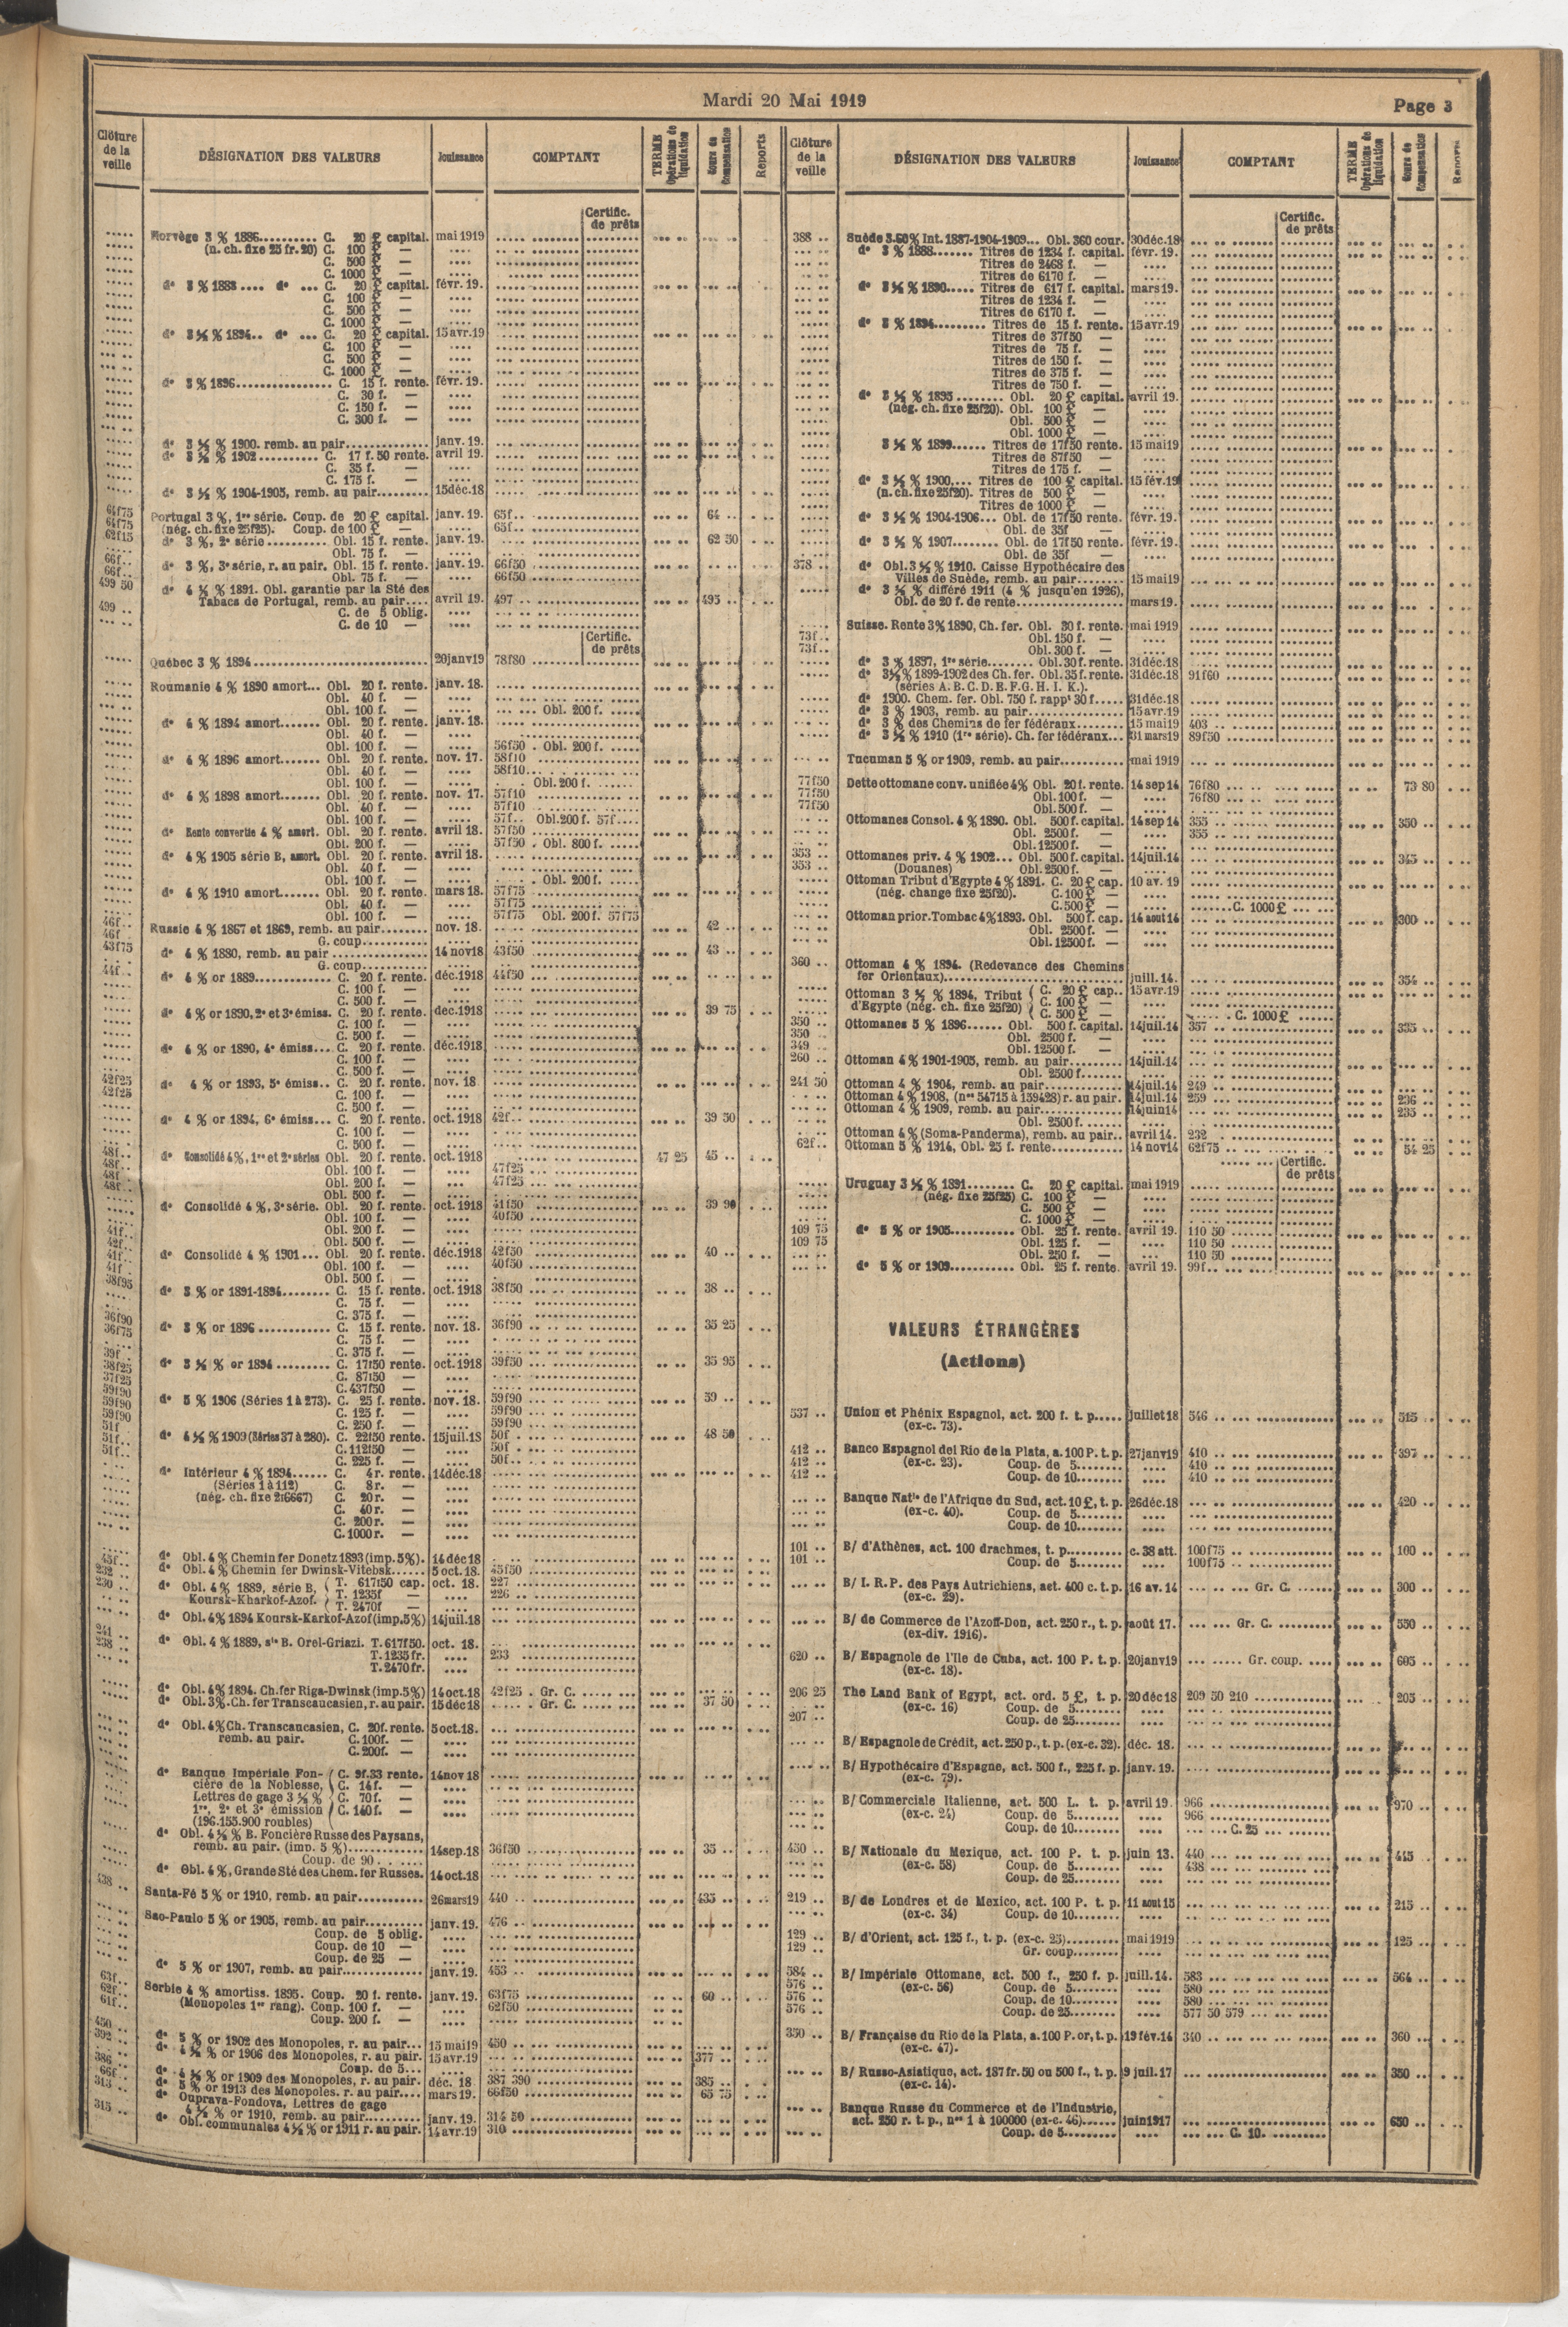 Mardi 20 Mai 1919
Page 3
Clôture de la veille
DÉSIGNATION DES VALEURS
Jouissance
COMPTANT
TERME Opérations de liquidation
Cours de Compensation
Reports
Certific. de prêts
Norvège 3 % 1886.......... C. 20 £ capital. mai 1919
(n. ch. fixe 25 fr. 20) C. 100 £ —
C. 500 £ —
C. 1000 £ —
d° 3 % 1888 .... d° ... C. 20 £ capital. févr. 19.
C. 100 £ —
C. 500 £ —
C. 1000 £ —
d° 3 ½ % 1894.. d° ... C. 20 £ capital. 15 avr. 19
C. 100 £ —
C. 500 £ —
C. 1000 £ —
d° 3 % 1896................ C. 15 f. rente. févr. 19.
C. 30 f. —
C. 150 f. —
C. 300 f. —
d° 3 ½ % 1900. remb. au pair.............. janv. 19.
d° 3 ½ % 1902 .......... C. 17 f. 50 rente. avril 19.
C. 35 f. —
C. 175 f. —
d° 3 ½ % 1904-1905, remb. au pair......... 15 déc. 18
64f75 Portugal 3 %, 1re série. Coup. de 20 £ capital. janv. 19. 65f.. 64 ..
64f75 (nég. ch. fixe 25f25). Coup. de 100 £ — 65f..
62f15 d° 3 %, 2e série .......... Obl. 15 f. rente. janv. 19. 62 50
Obl. 75 f. —
66f.. d° 3 %, 3e série, r. au pair. Obl. 15 f. rente. janv. 19. 66f50
66f.. Obl. 75 f. — 66f50
499 50 d° 4 ½ % 1891. Obl. garantie par la Sté des
Tabacs de Portugal, remb. au pair.... avril 19. 497 495 ..
499 .. C. de 5 Oblig.
C. de 10 —
Certific. de prêts
Québec 3 % 1894.............................. 20 janv 19 78f80
Roumanie 4 % 1890 amort... Obl. 20 f. rente. janv. 18.
Obl. 40 f. —
Obl. 100 f. — Obl. 200 f.
d° 4 % 1894 amort....... Obl. 20 f. rente. janv. 18.
Obl. 40 f. —
Obl. 100 f. — 56f50 . Obl. 200 f.
d° 4 % 1896 amort....... Obl. 20 f. rente. nov. 17. 58f10
Obl. 40 f. — 58f10
Obl. 100 f. — Obl. 200 f.
d° 4 % 1898 amort....... Obl. 20 f. rente. nov. 17. 57f10
Obl. 40 f. — 57f10
Obl. 100 f. — 57f.. Obl. 200 f. 57f....
d° Rente convertie 4 % amort. Obl. 20 f. rente. avril 18. 57f50
Obl. 200 f. — 57f50 . Obl. 800 f.
d° 4 % 1905 série B, amort. Obl. 20 f. rente. avril 18.
Obl. 40 f. —
Obl. 100 f. — . Obl. 200 f.
d° 4 % 1910 amort....... Obl. 20 f. rente. mars 18. 57f75
Obl. 40 f. — 57f75
Obl. 100 f. — 57f75 Obl. 200 f. 57f75
46f.. Russie 4 % 1867 et 1869, remb. au pair........ nov. 18. 42 ..
46f G. coup...........
43f75 d° 4 % 1880, remb. au pair ................ 14 nov 18 43f50 43 ..
G. coup...........
44f.. d° 4 % or 1889............. C. 20 f. rente. déc. 1918 44f50
C. 100 f. —
C. 500 f. —
d° 4 % or 1890, 2e et 3e émiss. C. 20 f. rente. dec. 1918 39 75
C. 100 f. —
C. 500 f. —
d° 4 % or 1890, 4e émiss... C. 20 f. rente. déc. 1918
C. 100 f. —
C. 500 f. —
42f25 d° 4 % or 1893, 5e émiss.. C. 20 f. rente. nov. 18
42f25 C. 100 f. —
C. 500 f. —
d° 4 % or 1894, 6e émiss... C. 20 f. rente. oct. 1918 42f.. 39 50
C. 100 f. —
C. 500 f. —
48f.. d° Consolidé 4 %, 1re et 2e séries Obl. 20 f. rente. oct. 1918 47 25 45 ..
48f.. Obl. 100 f. — 47f25
48f.. Obl. 200 f. — 47f25
48f.. Obl. 500 f. —
d° Consolidé 4 %, 3e série. Obl. 20 f. rente. oct. 1918 41f50 39 90
Obl. 100 f. — 40f50
41f.. Obl. 200 f. —
42f.. Obl. 500 f. —
41f.. d° Consolidé 4 % 1901... Obl. 20 f. rente. déc. 1918 42f50 40 ..
41f.. Obl. 100 f. — 40f50
38f95 Obl. 500 f. —
d° 3 % or 1891-1894........ C. 15 f. rente. oct. 1918 38f50 38 ..
C. 75 f. —
C. 375 f. —
36f90 d° 3 % or 1896 ............ C. 15 f. rente. nov. 18. 36f90 35 25
36f75 C. 75 f. —
C. 375 f. —
39f.. d° 3 ½ % or 1894 ......... C. 17f50 rente. oct. 1918 39f50 35 95
38f25 C. 87f50 —
37f25 C. 437f50 —
59f90 d° 5 % 1906 (Séries 1 à 273). C. 25 f. rente. nov. 18. 59f90 59 ..
59f90 C. 125 f. — 59f90
59f90 C. 250 f. — 59f90
51f.. d° 4 ½ % 1909 (Séries 37 à 280). C. 22f50 rente. 15 juil. 18 50f.. 48 50
51f.. C. 112f50 — 50f
51f.. C. 225 f. — 50f..
d° Intérieur 4 % 1894...... C. 4 r. rente. 14 déc. 18
(Séries 1 à 112) C. 8 r. —
(nég. ch. fixe 2f6667) C. 20 r. —
C. 40 r. —
C. 200 r. —
C. 1000 r. —
d° Obl. 4 % Chemin fer Donetz 1893 (imp. 5 %). 14 déc 18
45f.. d° Obl. 4 % Chemin fer Dwinsk-Vitebsk...... 5 oct. 18. 45f50
232 .. d° Obl. 4 % 1889, série B, T. 617f50 cap. oct. 18. 227
230 .. Koursk-Kharkof-Azof. T. 1235f — 226
T. 2470f —
d° Obl. 4 % 1894 Koursk-Karkof-Azof (imp. 5 %) 14 juil. 18
241 ..
238 .. d° Obl. 4 % 1889, sie B. Orel-Griazi. T. 617f50. oct. 18.
T. 1235 fr. 233
T. 2470 fr.
d° Obl. 4 % 1894. Ch. fer Riga-Dwinsk (imp. 5 %) 14 oct. 18 42f25 . Gr. C.
d° Obl. 3 %. Ch. fer Transcaucasien, r. au pair. 15 déc 18 Gr. C. 37 50
d° Obl. 4 % Ch. Transcaucasien, C. 20f. rente. 5 oct. 18.
remb. au pair. C. 100f. —
C. 200f. —
d° Banque Impériale Fon- C. 9f.33 rente. 14 nov 18
cière de la Noblesse, C. 14 f. —
Lettres de gage 3 ½ % C. 70 f. —
1re, 2e et 3e émission C. 140 f. —
(196.155.900 roubles)
d° Obl. 4 ½ % B. Foncière Russe des Paysans,
remb. au pair. (imp. 5 %).............. 14 sep. 18 36f50 35 ..
Coup. de 90
d° Obl. 4 %, Grande Sté des Chem. fer Russes. 14 oct. 18
438 ..
Santa-Fé 5 % or 1910, remb. au pair........... 26 mars 19 440 435 ..
Sao-Paulo 5 % or 1905, remb. au pair.......... janv. 19. 476
Coup. de 5 oblig.
Coup. de 10 —
Coup. de 25 —
d° 5 % or 1907, remb. au pair............. janv. 19. 453
63f.. Serbie 4 % amortiss. 1895. Coup. 20 f. rente. janv. 19. 63f75 60 ..
62f.. (Monopoles 1er rang). Coup. 100 f. — 62f50
61f.. Coup. 200 f. —
450 .. d° 5 % or 1902 des Monopoles, r. au pair... 15 mai 19 450
392 .. d° 4 ½ % or 1906 des Monopoles, r. au pair. 15 avr. 19 377 ..
Coup. de 5...
386 .. d° 4 ½ % or 1909 des Monopoles, r. au pair. déc. 18 387 390 385 ..
66f.. d° 5 % or 1913 des Monopoles. r. au pair.... mars 19. 66f50 65 75
313 .. d° Ouprava-Fondova, Lettres de gage
4 ½ % or 1910, remb. au pair........... janv. 19. 314 50
315 .. d° Obl. communales 4 ½ % or 1911 r. au pair. 14 avr. 19 310
Clôture de la veille
DÉSIGNATION DES VALEURS
Jouissance
COMPTANT
TERME Opérations de liquidation
Cours de Compensation
Reports
Certific. de prêts
388 .. Suède 3.60 % Int. 1887-1904-1909... Obl. 360 cour. 30 déc. 18
d° 3 % 1888....... Titres de 1234 f. capital. févr. 19.
Titres de 2468 f. —
Titres de 6170 f. —
d° 3 ½ % 1890..... Titres de 617 f. capital. mars 19.
Titres de 1234 f. —
Titres de 6170 f. —
d° 3 % 1894......... Titres de 15 f. rente. 15 avr. 19
Titres de 37f50 —
Titres de 75 f. —
Titres de 150 f. —
Titres de 375 f. —
Titres de 750 f. —
d° 3 ½ % 1895 ........ Obl. 20 £ capital. avril 19.
(nég. ch. fixe 25f20). Obl. 100 £ —
Obl. 500 £ —
Obl. 1000 £ —
3 ½ % 1899...... Titres de 17f50 rente. 15 mai 19
Titres de 87f50 —
Titres de 175 f. —
d° 3 ½ % 1900.... Titres de 100 £ capital. 15 fév. 19
(n. ch. fixe 25f20). Titres de 500 £ —
Titres de 1000 £ —
d° 3 ½ % 1904-1906... Obl. de 17f50 rente. févr. 19.
Obl. de 35f —
d° 3 ½ % 1907........ Obl. de 17f50 rente. févr. 19.
Obl. de 35f —
378 .. d° Obl. 3 ½ % 1910. Caisse Hypothécaire des
Villes de Suède, remb. au pair........ 15 mai 19
d° 3 ½ % différé 1911 (4 % jusqu'en 1926),
Obl. de 20 f. de rente................. mars 19.
Suisse. Rente 3 % 1890, Ch. fer. Obl. 30 f. rente. mai 1919
73f.. Obl. 150 f. —
73f.. Obl. 300 f. —
d° 3 % 1897, 1re série........ Obl. 30 f. rente. 31 déc. 18
d° 3 ½ % 1899-1902 des Ch. fer. Obl. 35 f. rente. 31 déc. 18 91f60
(séries A. B. C. D. E. F. G. H. I. K.).
d° 1900. Chem. fer. Obl. 750 f. rappt 30 f..... 31 déc. 18
d° 3 % 1903, remb. au pair................ 15 avr. 19
d° 3 % des Chemins de fer fédéraux......... 15 mai 19 403
d° 3 ½ % 1910 (1re série). Ch. fer fédéraux... 31 mars 19 89f50
Tucuman 5 % or 1909, remb. au pair........... mai 1919
77f50 Dette ottomane conv. unifiée 4 % Obl. 20 f. rente. 14 sep 14 76f80 73 80
77f50 Obl. 100 f. — 76f80
77f50 Obl. 500 f. —
Ottomanes Consol. 4 % 1890. Obl. 500 f. capital. 14 sep 14 355 350 ..
Obl. 2500 f. — 355
Obl. 12500 f. —
353 .. Ottomanes priv. 4 % 1902... Obl. 500 f. capital. 14 juil. 14 345 ..
353 .. (Douanes) Obl. 2500 f. —
Ottoman Tribut d'Egypte 4 % 1891. C. 20 £ cap. 10 av. 19
(nég. change fixe 25f20). C. 100 £ —
C. 500 £ — C. 1000 £
Ottoman prior. Tombac 4 % 1893. Obl. 500 f. cap. 14 aout 14 300 ..
Obl. 2500 f. —
Obl. 12500 f. —
360 .. Ottoman 4 % 1894. (Redevance des Chemins
fer Orientaux)............................ juill. 14. 354 ..
Ottoman 3 ½ % 1894, Tribut C. 20 £ cap.. 15 avr. 19
d'Egypte (nég. ch. fixe 25f20) C. 100 £ —
C. 500 £ — C. 1000 £
350 .. Ottomanes 5 % 1896...... Obl. 500 f. capital. 14 juil. 14 357 335 ..
350 .. Obl. 2500 f. —
349 .. Obl. 12500 f. —
260 .. Ottoman 4 % 1901-1905, remb. au pair......... 14 juil. 14
Obl. 2500 f......
241 50 Ottoman 4 % 1904, remb. au pair.............. 14 juil. 14 249
Ottoman 4 % 1908, (nos 54715 à 159428) r. au pair. 14 juil. 14 259 236 ..
Ottoman 4 % 1909, remb. au pair.............. 14 juin 14 235 ..
Obl. 2500 f.
Ottoman 4 % (Soma-Panderma), remb. au pair.. avril 14. 232
62f.. Ottoman 5 % 1914, Obl. 25 f. rente............ 14 nov 14 62f75 54 25
Certific. de prêts
Uruguay 3 ½ % 1891........ C. 20 £ capital. mai 1919
(nég. fixe 25f25) C. 100 £ —
C. 500 £ —
C. 1000 £ —
109 75 d° 5 % or 1905........... Obl. 25 f. rente. avril 19. 110 50
109 75 Obl. 125 f. — 110 50
Obl. 250 f. — 110 50
d° 5 % or 1909........... Obl. 25 f. rente. avril 19. 99f..
VALEURS ÉTRANGÈRES
(Actions)
537 .. Union et Phénix Espagnol, act. 200 f. t. p..... juillet 18 546 .. 515 ..
(ex-c. 73).
412 .. Banco Espagnol del Rio de la Plata, a. 100 P. t. p. 27 janv 19 410 397 ..
412 .. (ex-c. 23). Coup. de 5........ 410
412 .. Coup. de 10........ 410
Banque Natle de l'Afrique du Sud, act. 10 £, t. p. 26 déc. 18 420 ..
(ex-c. 40). Coup. de 5........
Coup. de 10........
101 .. B/ d'Athènes, act. 100 drachmes, t. p.......... c. 38 att. 100f75 100 ..
101 .. Coup. de 5........ 100f75
B/ I. R. P. des Pays Autrichiens, act. 400 c. t. p. 16 av. 14 Gr. C. 300 ..
(ex-c. 29).
B/ de Commerce de l'Azoff-Don, act. 250 r., t. p. août 17. Gr. C. 550 ..
(ex-div. 1916).
620 .. B/ Espagnole de l'Ile de Cuba, act. 100 P. t. p. 20 janv 19 Gr. coup. 605 ..
(ex-c. 18).
206 25 The Land Bank of Egypt, act. ord. 5 £, t. p. 20 déc 18 209 50 210 205 ..
(ex-c. 16) Coup. de 5........
207 .. Coup. de 25........
B/ Espagnole de Crédit, act. 250 p., t. p. (ex-c. 32). déc. 18.
B/ Hypothécaire d'Espagne, act. 500 f., 225 f. p. janv. 19.
(ex-c. 79).
B/ Commerciale Italienne, act. 500 L. t. p. avril 19 966 970 ..
(ex-c. 24) Coup. de 5........ 966
Coup. de 10........ C. 25
450 .. B/ Nationale du Mexique, act. 100 P. t. p. juin 13. 440 445 ..
(ex-c. 58) Coup. de 5........ 438
Coup. de 25........
219 .. B/ de Londres et de Mexico, act. 100 P. t. p. 11 aout 15 215 ..
(ex-c. 34) Coup. de 10........
129 .. B/ d'Orient, act. 125 f., t. p. (ex-c. 25)......... mai 1919 125 ..
129 .. Gr. coup........
584 .. B/ Impériale Ottomane, act. 500 f., 250 f. p. juill. 14. 583 564 ..
576 .. (ex-c. 56) Coup. de 5........ 580
576 .. Coup. de 10........ 580
576 .. Coup. de 25........ 577 50 579
350 .. B/ Française du Rio de la Plata, a. 100 P. or, t. p. 19 fév. 14 340 360 ..
(ex-c. 47).
B/ Russo-Asiatique, act. 187 fr. 50 ou 500 f., t. p. 9 juil. 17 350 ..
(ex-c. 14).
Banque Russe du Commerce et de l'Industrie,
act. 250 r. t. p., nos 1 à 100000 (ex-c. 46)...... juin 1917 650 ..
Coup. de 5......... C. 10.